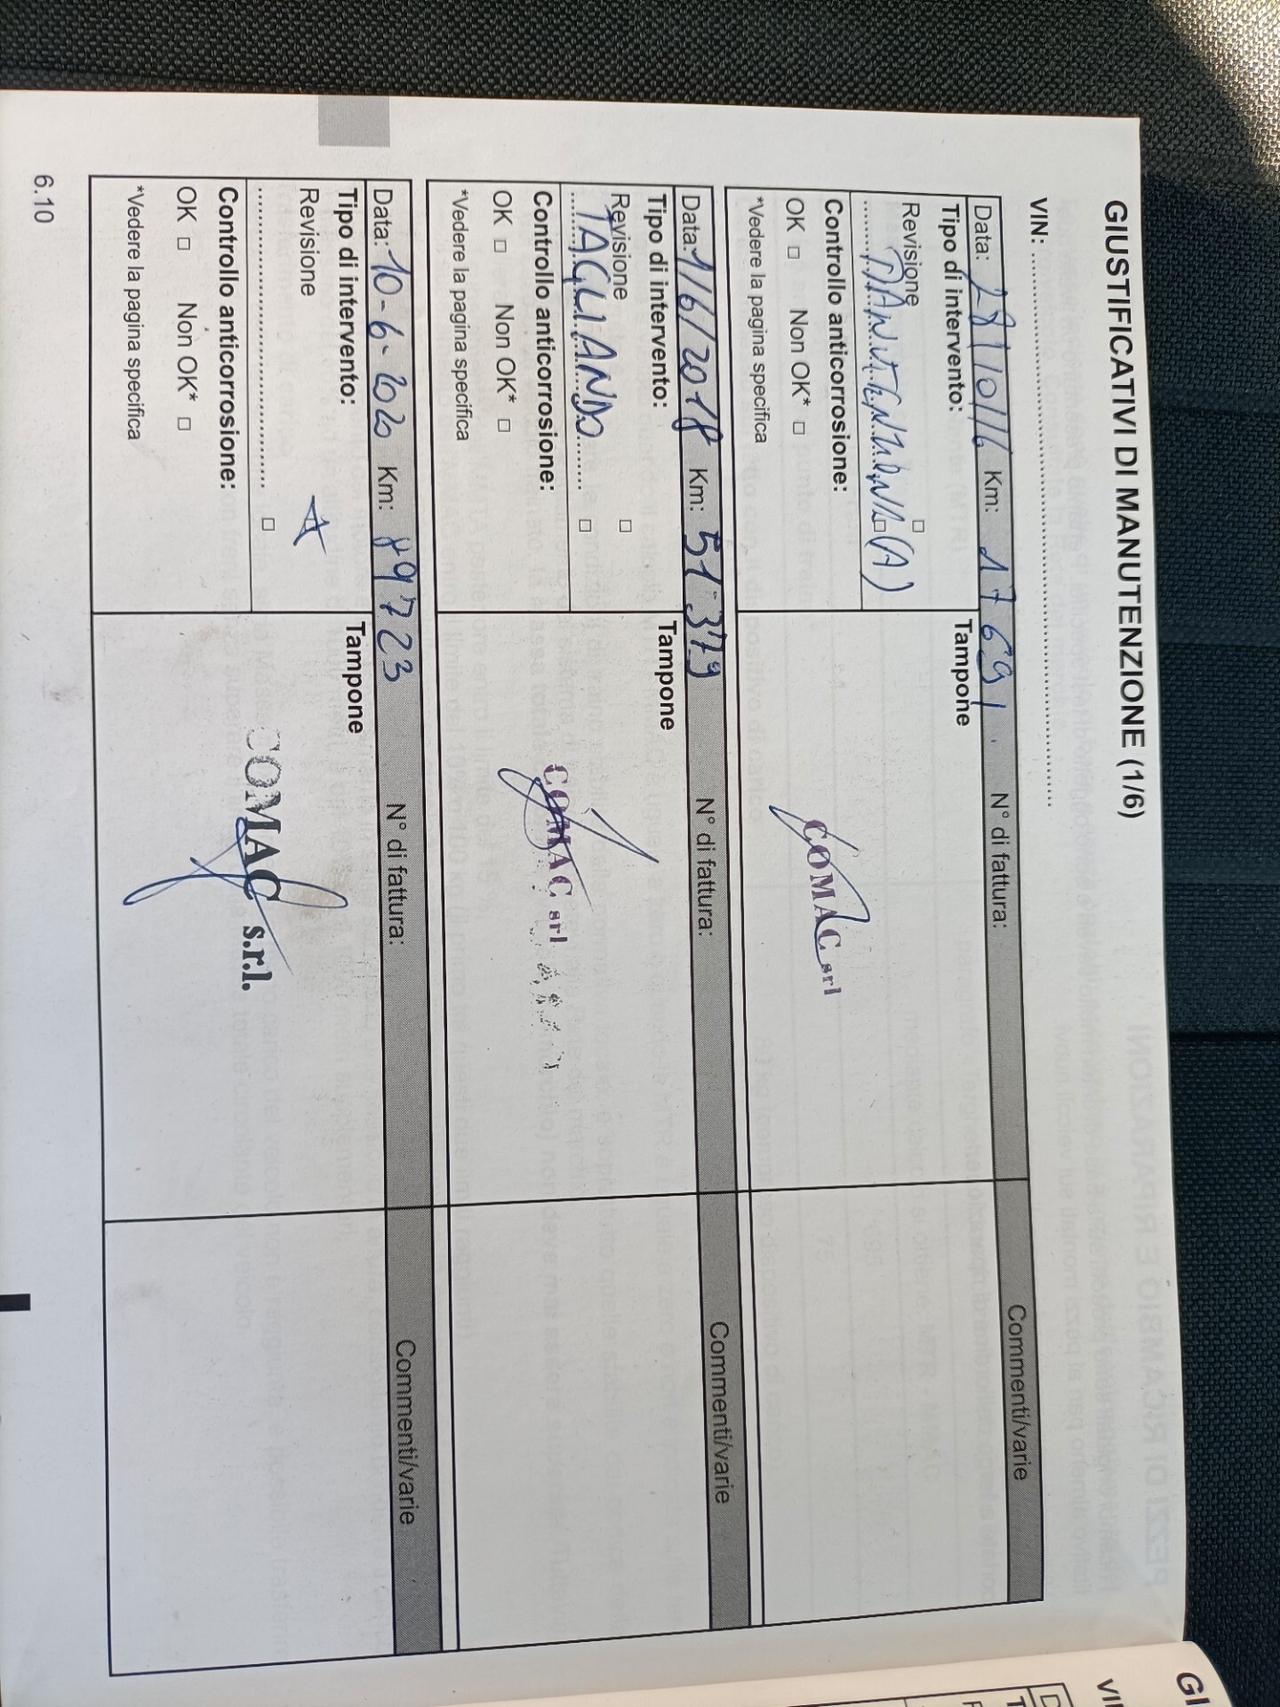 GIUSTIFICATIVI DI MANUTENZIONE (1/6)
VIN: ..........................................
Data: 28/10/16 Km: 17691. N° di fattura: Commenti/varie
Tipo di intervento: Tampone
Revisione □
□ (A)
Controllo anticorrosione:
OK □ Non OK* □
*Vedere la pagina specifica
COMAC srl
Data: 1/6/2018 Km: 51379 N° di fattura: Commenti/varie
Tipo di intervento: Tampone
Revisione □
TAGLIANDO □
Controllo anticorrosione:
OK □ Non OK* □
*Vedere la pagina specifica
COMAC srl
Data: 10-6-2020 Km: 89723 N° di fattura: Commenti/varie
Tipo di intervento: Tampone
Revisione A
.......................................... □
Controllo anticorrosione:
OK □ Non OK* □
*Vedere la pagina specifica
COMAC s.r.l.
6.10